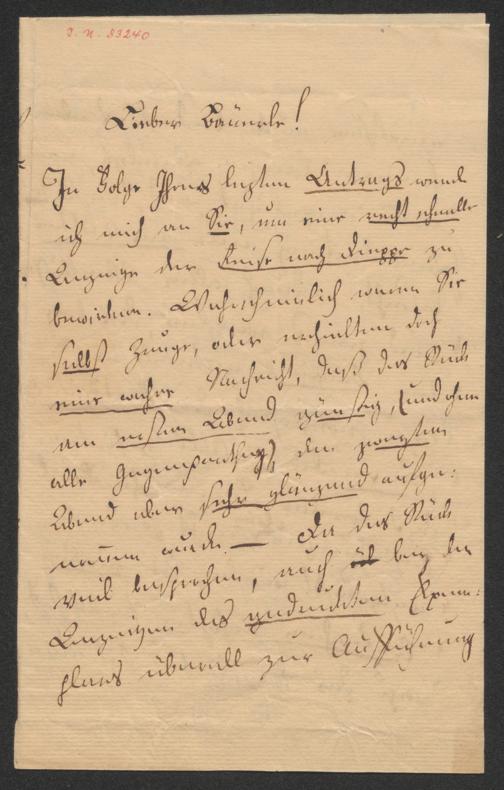 I. N. 53240
Lieber Bäuerle!
In Folge Ihres letzten Antrags wende
ich mich an Sie, um eine recht schnelle
Anzeige der Reise nach Dieppe zu
bewirken. Wahrscheinlich waren Sie
selbst Zeuge, oder erhielten doch
eine wahre Nachricht, daß das Stück
am ersten Abend günstig, (und ohne
alle Gegenparthey) den zweyten
Abend aber sehr glänzend aufge-
nommen wurde. — Da das Stück
viel besprochen, auch bey den
Anzeigen des gedruckten Exem-
plars überall zur Aufführung